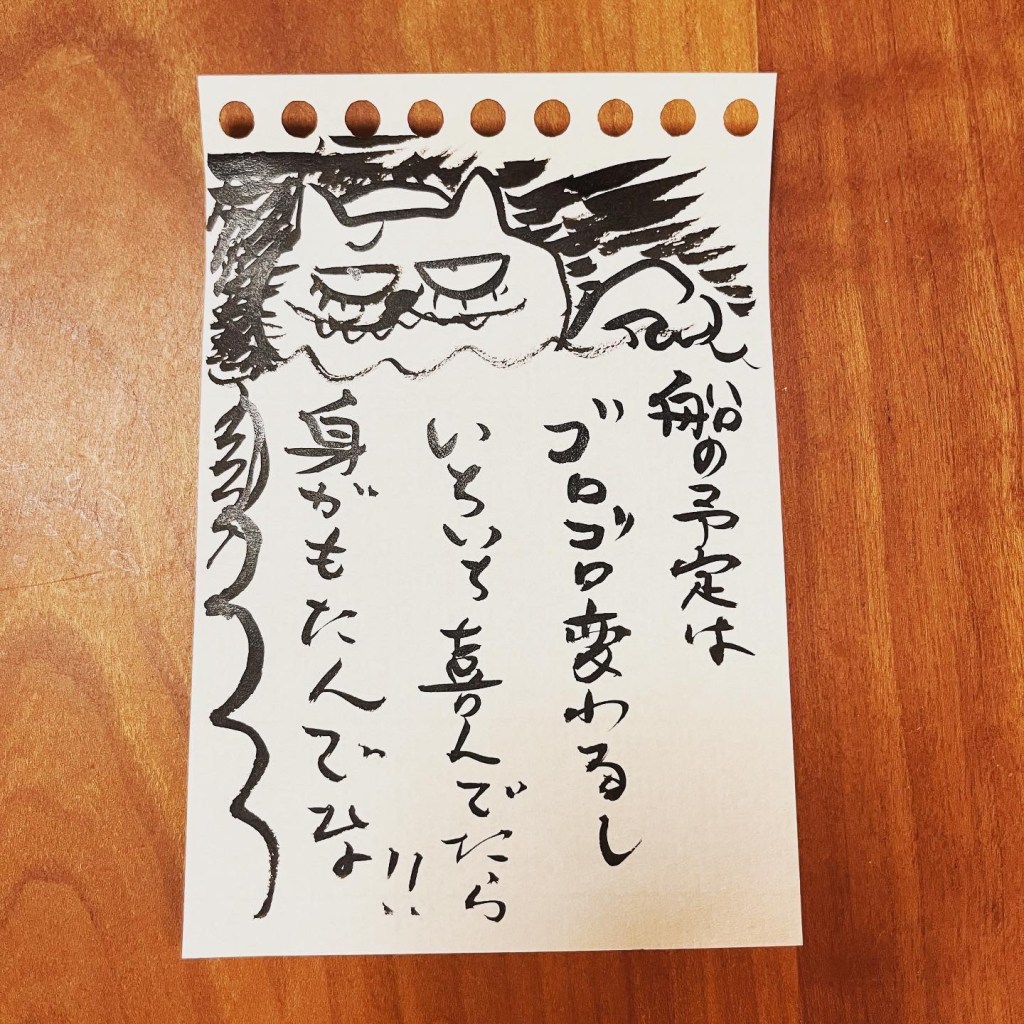 船の予定は
ゴロゴロ変わるし
いちいち喜んでたら
身がもたんでな!!